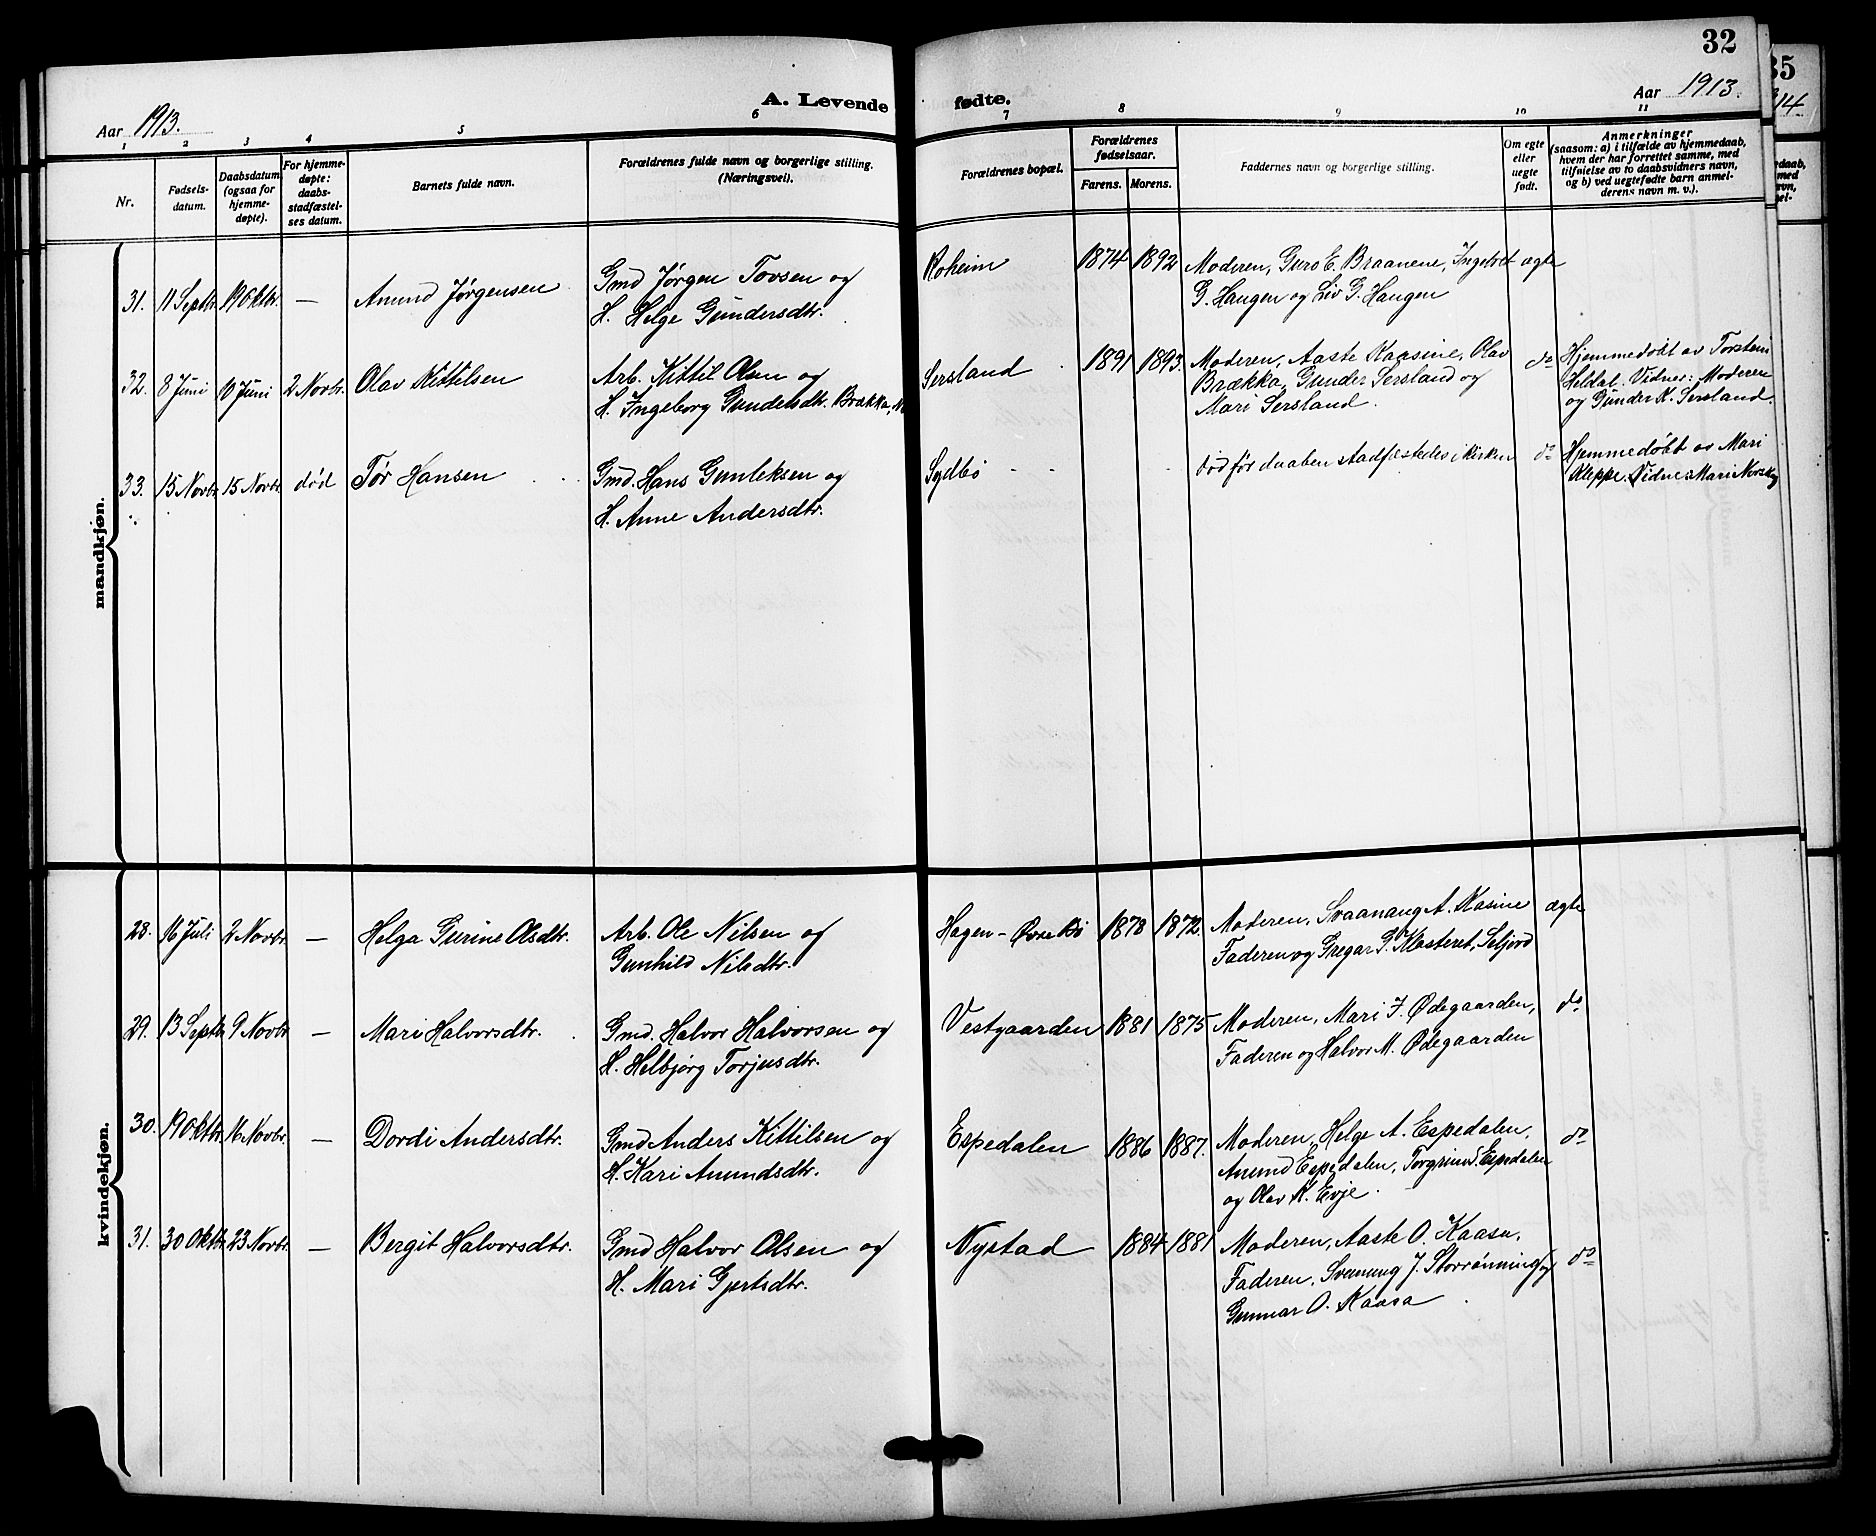 32
35
A. Levende fødte.
Aar 1913.
Aar 1913.
14
1 2 3 4 5 6 7 8 9 10 11
Nr.
Fødsels-
datum.
Daabsdatum
(ogsaa for
hjemme-
døpte).
For hjemme-
døpte:
daabs-
stadfæstel-
ses datum.
Barnets fulde navn.
Forældrenes fulde navn og borgerlige stilling.
(Næringsvei).
Forældrenes bopæl.
Forældrenes
fødselsaar.
Farens. Morens.
Faddernes navn og borgerlige stilling.
Om egte
eller
uegte
født.
Anmerkninger
(saasom: a) i tilfælde av hjemmedaab,
hvem der har forrettet samme, med
tilføielse av to daabsvidners navn,
og b) ved uegtefødte barn anmel-
derens navn m. v.).
mandkjøn.
31. 11 Septbr. 19 Oktbr. — Amund Jørgensen Gmd Jørgen Tovsen og Roheim 1874 1892 Moderen, Guro E. Braanene, Ingebret ægte
H. Helge Gundersdtr. G. Haugen og Liv G. Haugen
32. 8 Juni 10 Juni 2 Novbr. Olav Kittilsen Arb. Kittil Olsen og Sersland 1891 1893. Moderen, Aaste Kaasine, Olav do Hjemmedøbt av Torstein
H. Ingeborg Gundersdtr. Brækka, Brækka, Gunder Sersland og Heldal. Vidner: Moderen
Mari Sersland. og Gunder K. Sersland.
33. 15 Novbr. 15 Novbr. død Tor Hansen Gmd. Hans Gunleksen og Sydbø død før daaben stadfæstedes i kirken do Hjemmedøbt av Mari
H. Anne Andersdtr. Kleppe. Vidne: Mari
kvindekjøn.
28. 16 Juli 2 Novbr. — Helga Gurine Olsdtr. Arb. Ole Nilsen og Hagen - Øvrebø 1878 1872. Moderen, Svaanaug A. Kasine ægte
Gunhild Nilsdtr. Faderen og Gregar G. Klosteret, Seljord
29. 13 Septbr 9 Novbr — Mari Halvorsdtr. Gmd. Halvor Halvorsen og Vestgaarden 1881 1875 Moderen, Mari J. Ødegaarden, do
H. Helbjørg Torjusdtr. Faderen og Halvor M. Ødegaarden
30. 19 Oktbr. 16 Novbr. — Dordi Andersdtr. Gmd Anders Kittilsen og Espedalen 1886 1887. Moderen, Helge A. Espedalen, do
H. Kari Amundsdtr. Amund Espedalen, Torgrim S. Espedalen
og Olav K. Evje.
31. 30 Oktbr. 23 Novbr. — Bergit Halvorsdtr. Gmd Halvor Olsen og Nystad 1884 1881 Moderen, Aaste O. Kaasa, do
H. Mari Gjertsdtr. Faderen, Svenung J. Storrønning og
Gunnar O. Kaasa